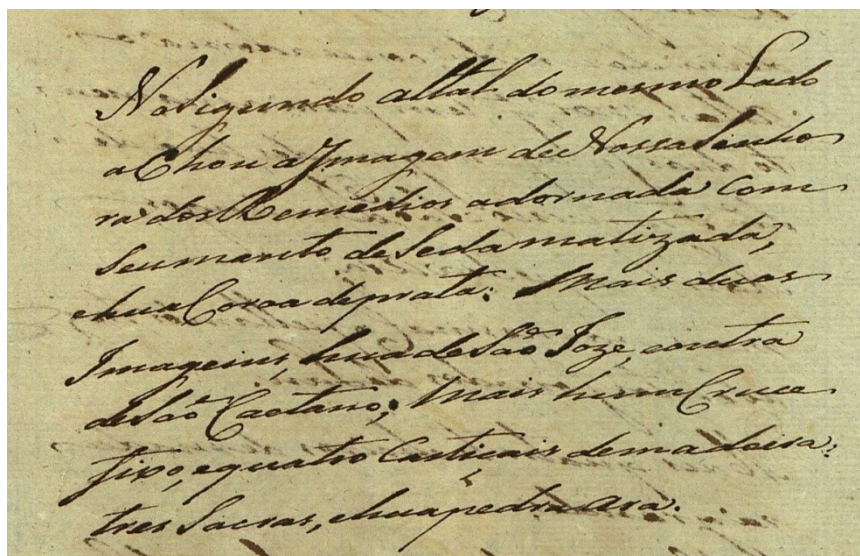 No Sigundo altal do mesmo Lado
achou a Ymagem de Nossa Senho
ra dos Remedios adornada com
seu manto de Seda matizada,
e hua Coroa de prata: Mais duas
Imageins, hua de São Joze, e outra
de São Caetano; Mais hum Cruce
fixo, e quatro Casticais de madeira:
tres Sacras, e hua pedra Ara.